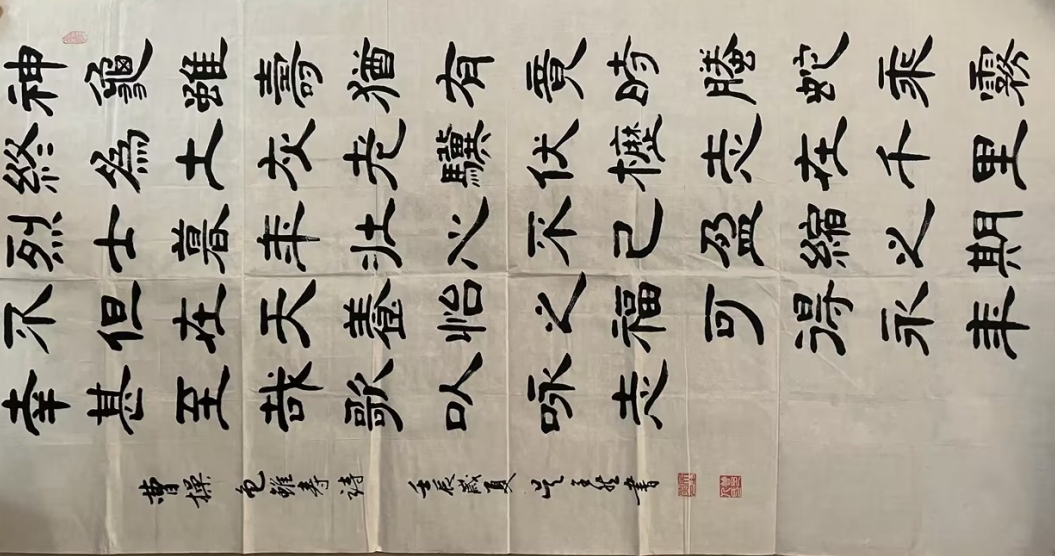 神龜雖壽猶有竟時騰蛇乘霧
終爲土灰老驥伏櫪志在千里
烈士暮年壯心不已盈縮之期
不但在天養怡之福可得永年
幸甚至哉歌以詠志
曹操龟雖寿詩 壬辰歲夏 書